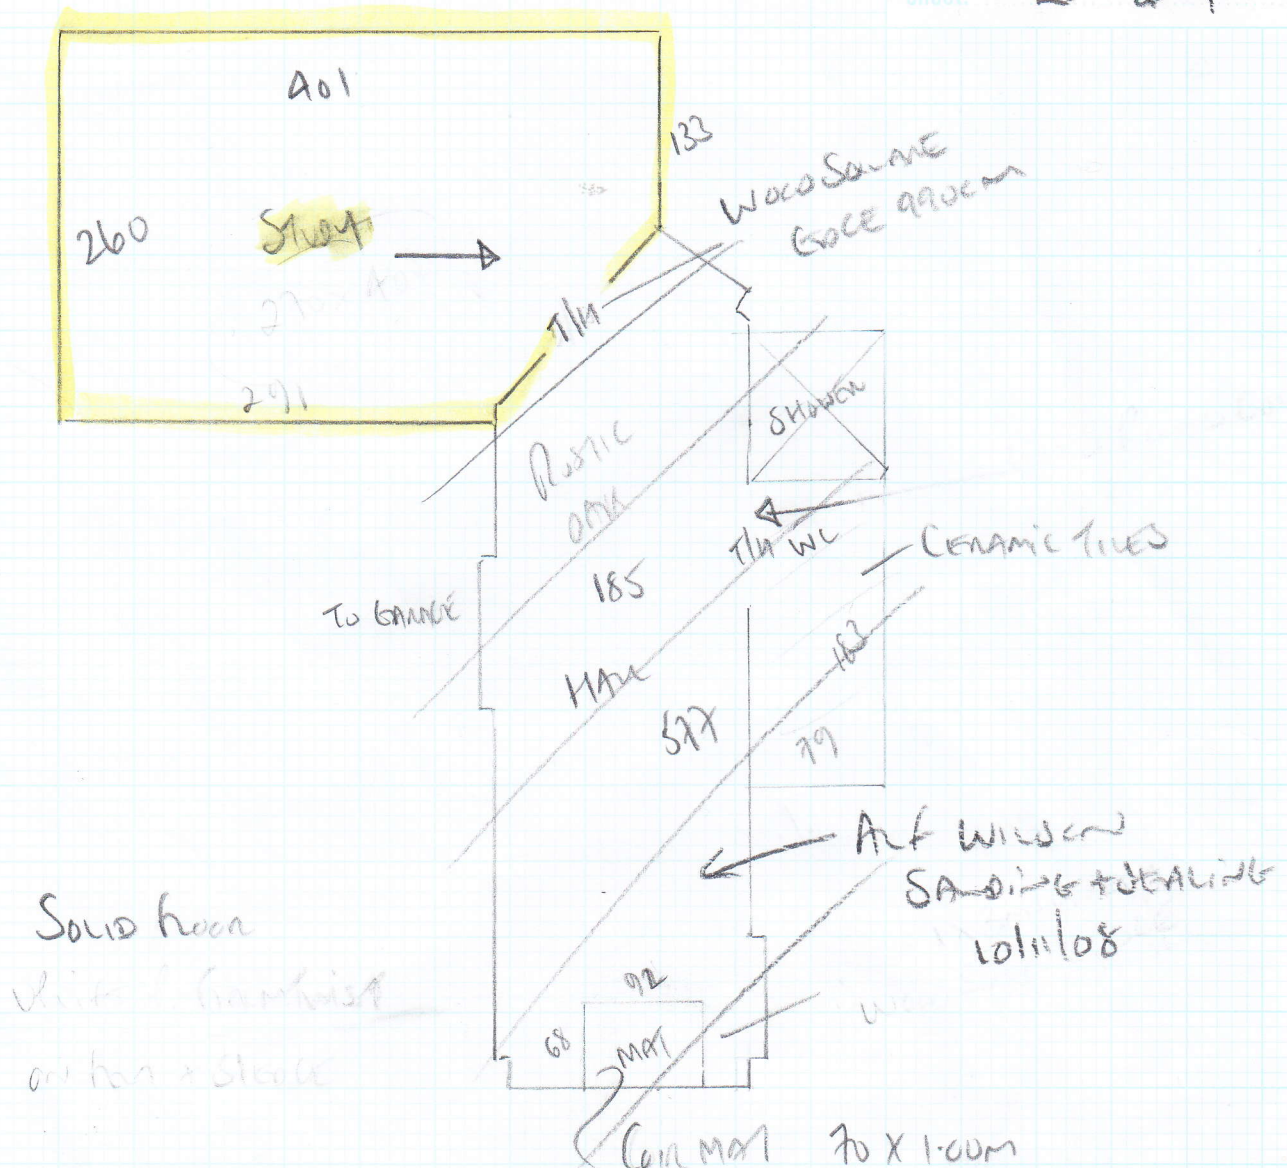 401
133
WOOD SQUARE
EDGE 990cm
260
STUDY
T/H
291
SHOWER
RUSTIC
OAK
T/H WC
CERAMIC TILES
185
TO GARAGE
163
HALL
577
79
ALF WILSON
SANDING + SEALING
10/11/08
SOLID FLOOR
92
68
MAT
COIR MAT 70 X 1.00M